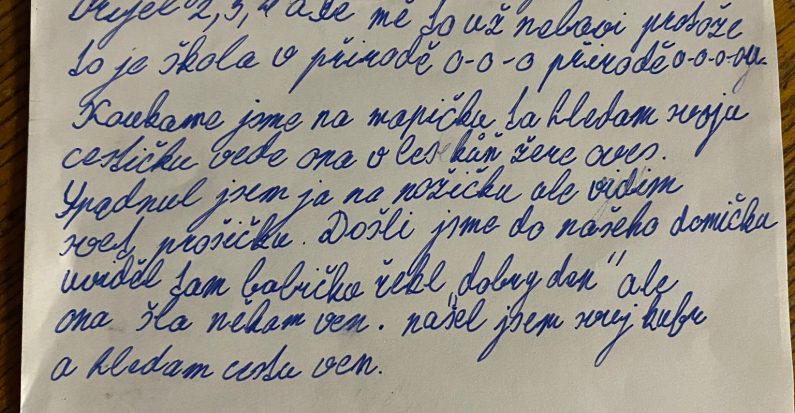 2, 3, 4 ale mě to už nebaví protože
to je škola v přirodě o-o-o přirodě o-o-o-oy.
Koukame jsme na mapičku ta hledam svoju
cestičku vede ona v les kůň žere oves.
Ypadnul jsem ja na nožičku ale vidim
svet prosičku. Došli jsme do našeho domičku
uviděl tam babičko řekl „dobry den" ale
ona šla někam ven. našel jsem svej kufr
a hledam cestu ven.